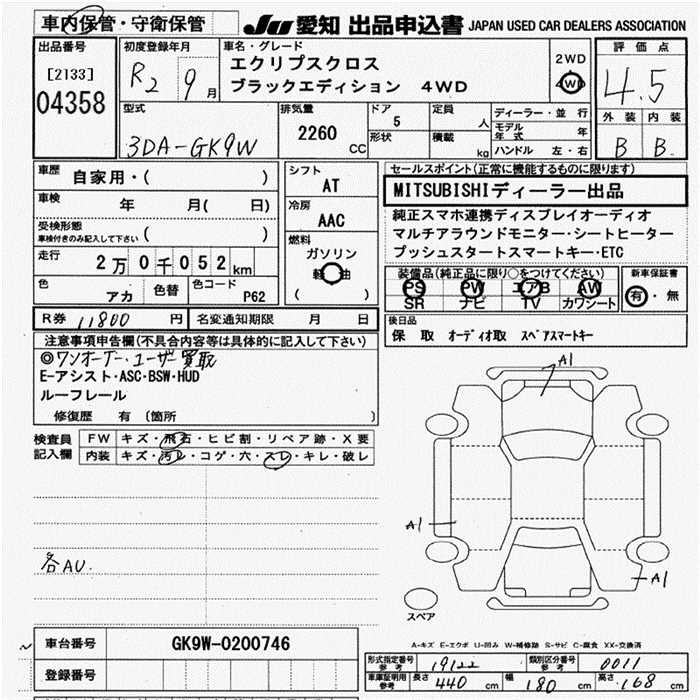 車内保管・守衛保管
JU 愛知 出品申込書 JAPAN USED CAR DEALERS ASSOCIATION
出品番号 初度登録年月 車名・グレード 評価点
[2133] R2 9月 エクリプスクロス 2WD
04358 ブラックエディション 4WD 4WD 4.5
型式 排気量 ドア 定員 ディーラー・並行 外装 内装
3DA-GK9W 2260 CC 5 人 モデル年式 年 B B
形状 積載 kg ハンドル 左・右
車歴 自家用・( ) シフト AT セールスポイント(正常に機能するものに限ります)
MITSUBISHIディーラー出品
車検 年 月( 日) 冷房 AAC 純正スマホ連携ディスプレイオーディオ
受検形態 車検付きのみ記入して下さい ( ) マルチアラウンドモニター・シートヒーター
燃料 ガソリン プッシュスタートスマートキー・ETC
走行 2万0千052km 軽油 ( )
装備品(純正品に限り○をつけてください) 新車保証書
PS PW エアB AW 有・無
SR ナビ TV カワシート
色 アカ 色替 色コード P62
R券 11800 円 名変通知期限 月 日 後日品
保 取 オーディオ取 スペアスマートキー
注意事項申告欄(不具合内容等は具体的に記入して下さい)
◎ワンオーナー・ユーザー買取
E-アシスト・ASC・BSW・HUD
ルーフレール
修復歴 有 〔箇所 〕
検査員記入欄 FW キズ・飛石・ヒビ割・リペア跡・X要
内装 キズ・汚レ・コゲ・穴・スレ・キレ・破レ
A1
A1
A1
各AU.
スペア
A-キズ E-エクボ U-凹み W-補修跡 S-サビ C-腐食 XX-交換済
車台番号 GK9W-0200746
登録番号
形式指定番号 参考 19122 類別区分番号 参考 0011
車庫証明用 参考 長さ 440 cm 幅 180 cm 高さ 168 cm